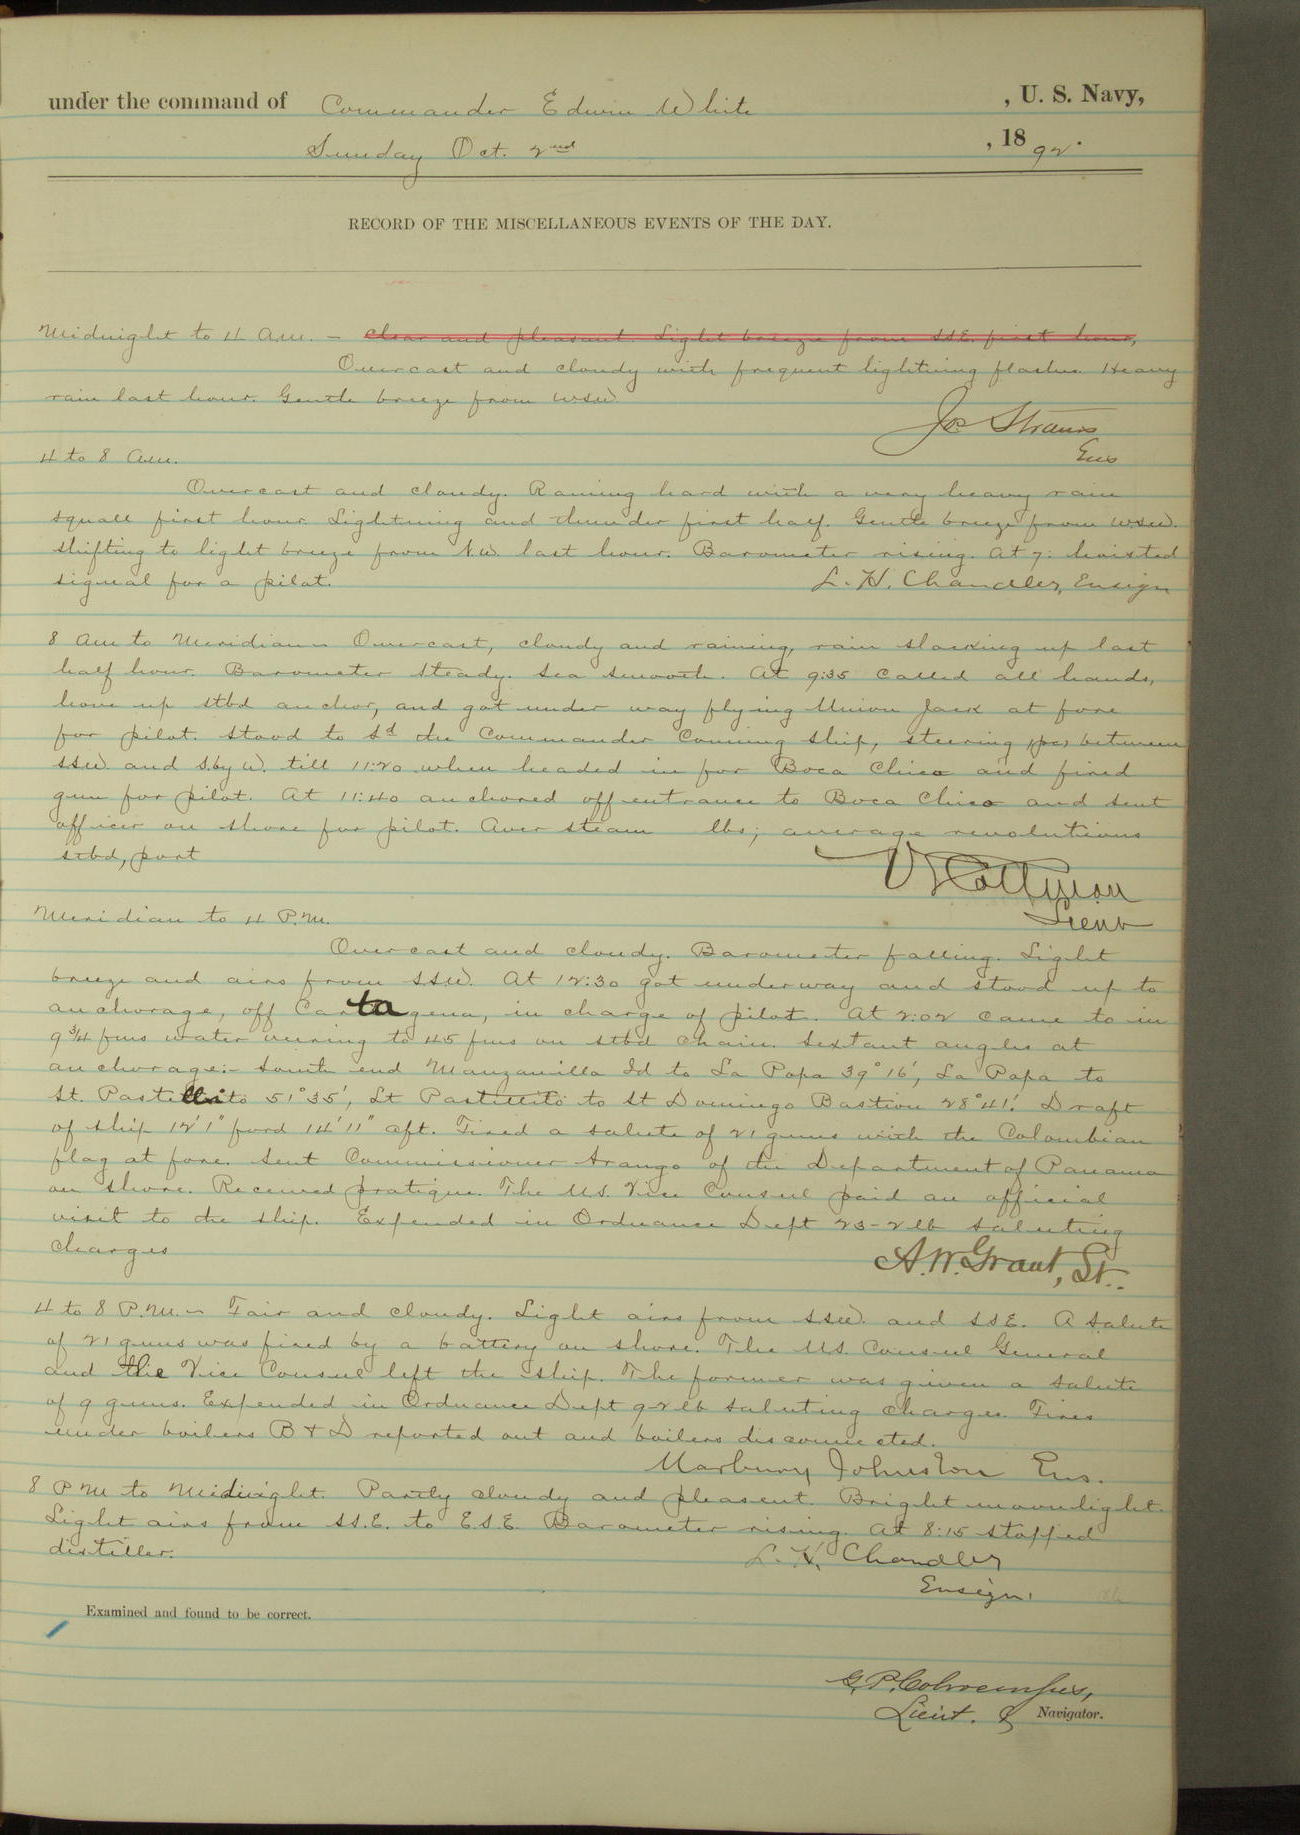 under the command of Commander Edwin White , U. S. Navy,
Sunday Oct. 2nd , 1892.
RECORD OF THE MISCELLANEOUS EVENTS OF THE DAY.
Midnight to 4 A.M. – clear and pleasant. Light breeze from SSE. first hour,
Overcast and cloudy with frequent lightning flashes. Heavy
rain last hour. Gentle breeze from WSW.
Jos Strauss
Ens
4 to 8 A.M.
Overcast and cloudy. Raining hard with a very heavy rain
squall first hour. Lightning and thunder first half. Gentle breeze from W.S.W.
shifting to light breeze from N.W. last hour. Barometer rising. At 7: hoisted
signal for a pilot.
L. H. Chandler, Ensign
8 AM to Meridian – Overcast, cloudy and raining, rain slacking up last
half hour. Barometer steady. Sea smooth. At 9:35 called all hands,
hove up stbd anchor, and got under way flying Union Jack at fore
for pilot. Stood to Sd the Commander Conning ship, steering pcs between
SSW. and S.by W. till 11:20 when headed in for Boca Chica and fired
gun for pilot. At 11:40 anchored off entrance to Boca Chica and sent
officer on shore for pilot. Aver steam lbs; average revolutions
stbd, port
Lieut
Meridian to 4 P.M.
Overcast and cloudy. Barometer falling. Light
breeze and airs from S.S.W. At 12:30 got underway and stood up to
anchorage, off Cartagena, in charge of pilot. At 2:02 came to in
9 3/4 fms water veering to 45 fms on stbd chain. Sextant angles at
anchorage:- South end Manzanilla Id to La Popa 39° 16', La Popa to
St. Pastellito 51° 35', St Pastillito to St Domingo Bastion 28° 41'. Draft
of ship 12' 1" ford 14' 11" aft. Fired a salute of 21 guns with the Colombian
flag at fore. Sent Commissioner Arango of the Department of Panama
on shore. Received pratique. The U.S. Vice Consul paid an official
visit to the ship. Expended in Ordnance Dept 23-2 lb saluting
charges
A. W. Grant, Lt.
4 to 8 P.M. – Fair and cloudy. Light airs from SSW. and SSE. A salute
of 21 guns was fired by a battery on shore. The U.S. Consul General
and the Vice Consul left the ship. The former was given a salute
of 9 guns. Expended in Ordnance Dept 9-2 lb saluting charges. Fires
under boilers B & D reported out and boilers disconnected.
Marbury Johnston Ens.
8 P.M. to Midnight. Partly cloudy and pleasent. Bright moonlight.
Light airs from SS.E. to E.S.E. Barometer rising. At 8:15 stopped
distiller.
L. H. Chandler
Ensign.
Examined and found to be correct.
G. P. Colvocoresses,
Lieut. & Navigator.